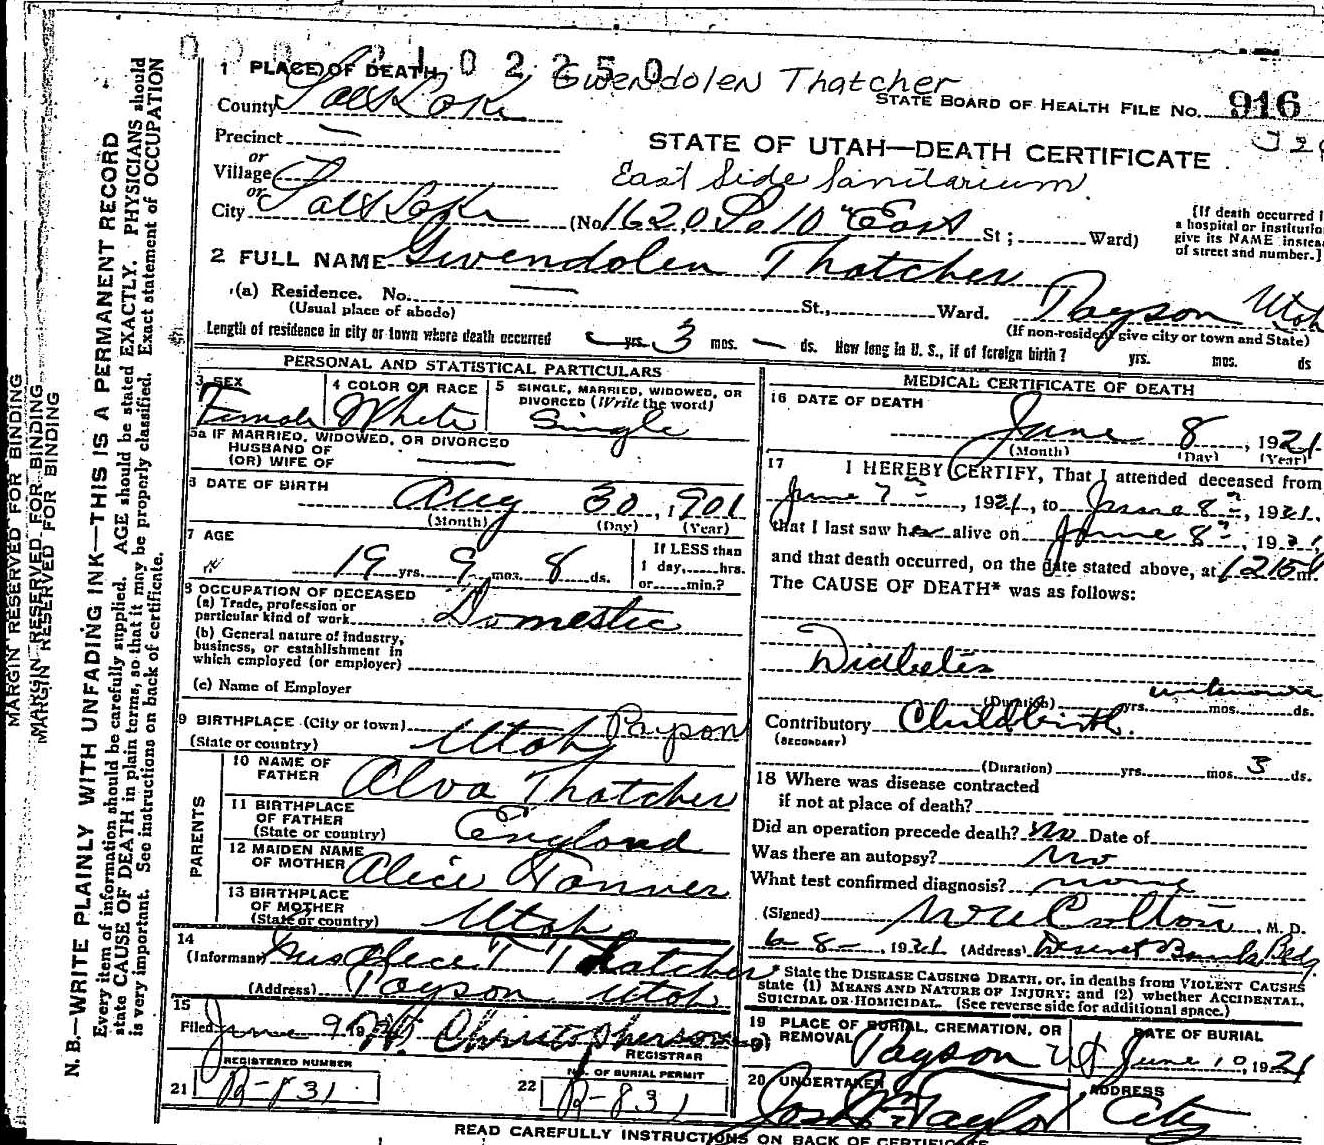 210225 0
1 PLACE OF DEATH
Gwendolen Thatcher
County Salt Lake
STATE BOARD OF HEALTH FILE No. 916
Precinct —
STATE OF UTAH—DEATH CERTIFICATE
or
Village
East Side Sanitarium
or
City Salt Lake (No 1620 So 10" East St; Ward)
(If death occurred
a hospital or institution
give its NAME instead
of street and number.)
2 FULL NAME Gwendolen Thatcher
(a) Residence. No. — St., Ward. Payson Utah
(Usual place of abode)
(If non-resident give city or town and State)
Length of residence in city or town where death occurred — yrs. 3 mos. — ds. How long in U. S., if of foreign birth? yrs. mos. ds
PERSONAL AND STATISTICAL PARTICULARS
3 SEX Female
4 COLOR OR RACE White
5 SINGLE, MARRIED, WIDOWED, OR DIVORCED (Write the word) Single
5a IF MARRIED, WIDOWED, OR DIVORCED
HUSBAND OF
(OR) WIFE OF —
6 DATE OF BIRTH Aug 30, 1901
(Month) (Day) (Year)
7 AGE
19 yrs. 9 mos. 8 ds.
If LESS than
1 day, hrs.
or min.?
8 OCCUPATION OF DECEASED
(a) Trade, profession or
particular kind of work Domestic
(b) General nature of industry,
business, or establishment in
which employed (or employer)
(c) Name of Employer
9 BIRTHPLACE (City or town) Payson
(State or country) Utah
PARENTS
10 NAME OF
FATHER Alva Thatcher
11 BIRTHPLACE
OF FATHER
(State or country) England
12 MAIDEN NAME
OF MOTHER Alice Tanner
13 BIRTHPLACE
OF MOTHER
(State or country) Utah
14
(Informant) Mrs Alice T Thatcher
(Address) Payson Utah
15
Filed June 9 Christopherson
REGISTRAR
REGISTERED NUMBER
21 R-831
NO. OF BURIAL PERMIT
22 R-831
MEDICAL CERTIFICATE OF DEATH
16 DATE OF DEATH
June 8, 1921
(Month) (Day) (Year)
17 I HEREBY CERTIFY, That I attended deceased from
June 7, 1921, to June 8, 1921.
that I last saw her alive on June 8, 1921,
and that death occurred, on the date stated above, at 1215 m.
The CAUSE OF DEATH* was as follows:
Diabetis
(Duration) unknown yrs. mos. ds.
Contributory Childbirth.
(SECONDARY)
(Duration) yrs. mos. 3 ds.
18 Where was disease contracted
if not at place of death?
Did an operation precede death? No Date of
Was there an autopsy? No
What test confirmed diagnosis? none
(Signed) Colton, M. D.
6-8-, 1921 (Address) Deseret Bank Bldg
* State the DISEASE CAUSING DEATH, or, in deaths from VIOLENT CAUSES
state (1) MEANS AND NATURE OF INJURY; and (2) whether ACCIDENTAL,
SUICIDAL OR HOMICIDAL. (See reverse side for additional space.)
19 PLACE OF BURIAL, CREMATION, OR
REMOVAL Payson Ut
DATE OF BURIAL
June 10, 1921
20 UNDERTAKER
Jos Wm Taylor
ADDRESS
City
READ CAREFULLY INSTRUCTIONS ON BACK OF CERTIFICATE
MARGIN RESERVED FOR BINDING
MARGIN RESERVED FOR BINDING
MARGIN RESERVED FOR BINDING
N. B.—WRITE PLAINLY WITH UNFADING INK—THIS IS A PERMANENT RECORD
Every item of information should be carefully supplied. AGE should be stated EXACTLY. PHYSICIANS should
state CAUSE OF DEATH in plain terms, so that it may be properly classified. Exact statement of OCCUPATION
is very important. See instructions on back of certificate.